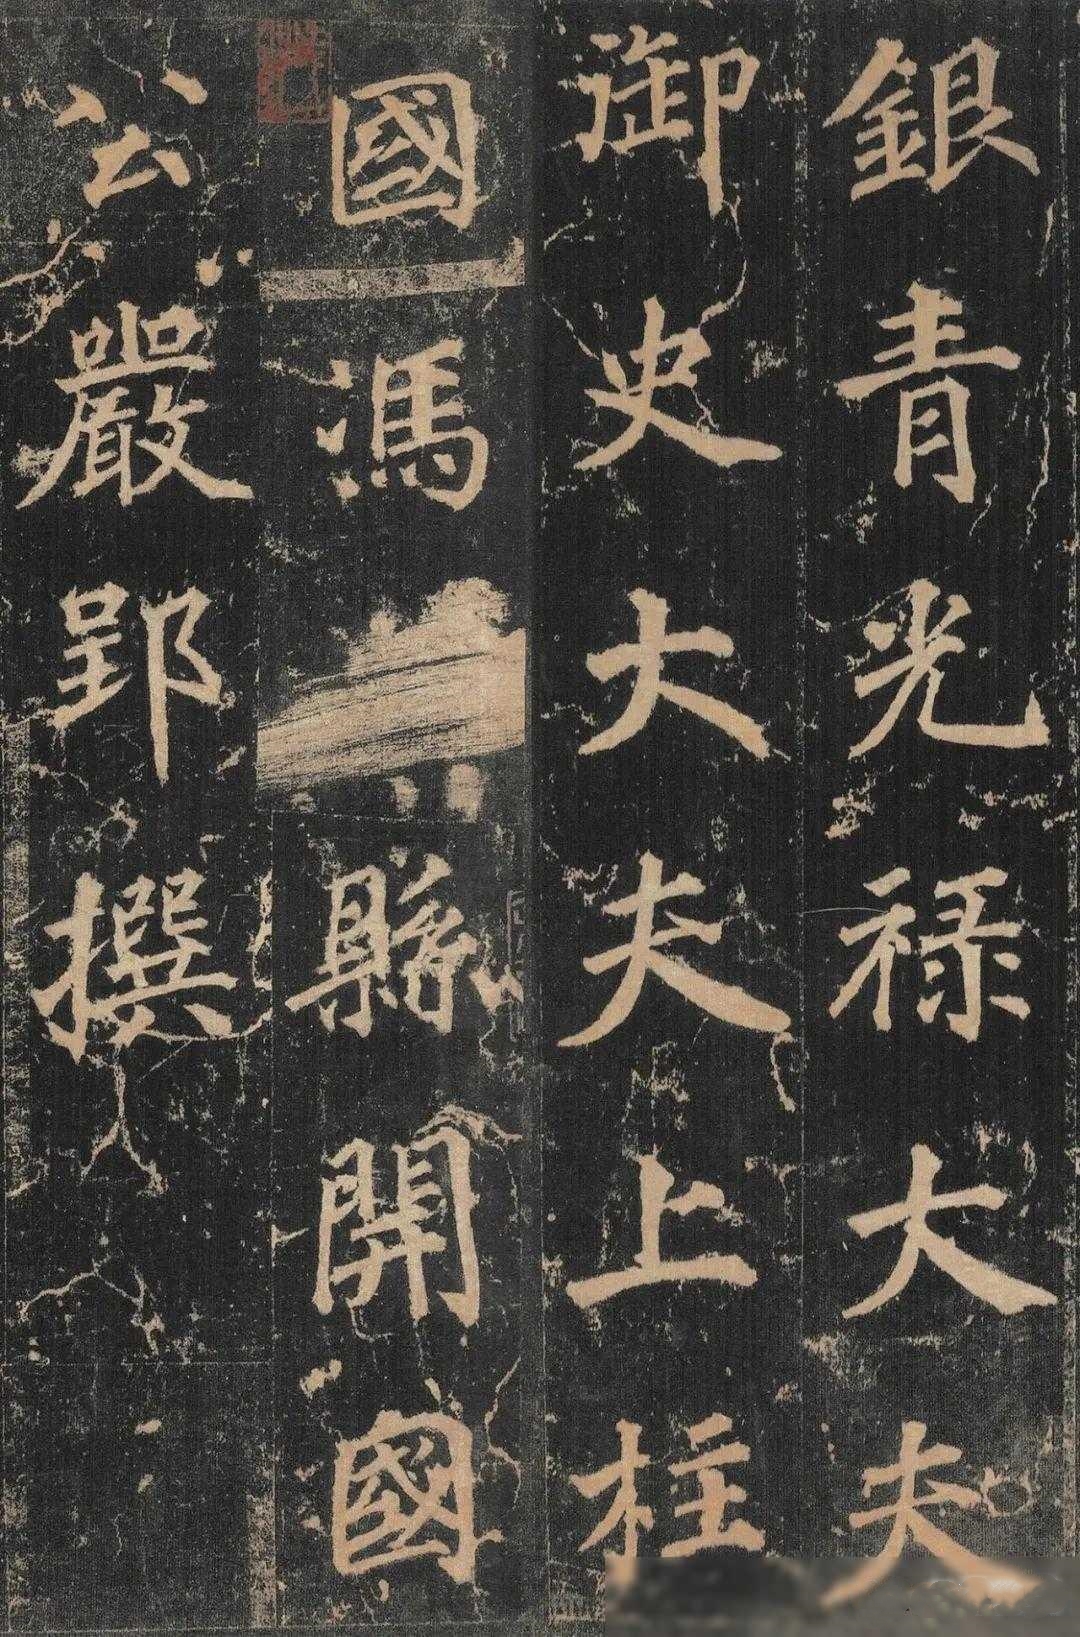 銀青光禄大夫
御史大夫上柱
國馮縣開國
公嚴郢撰